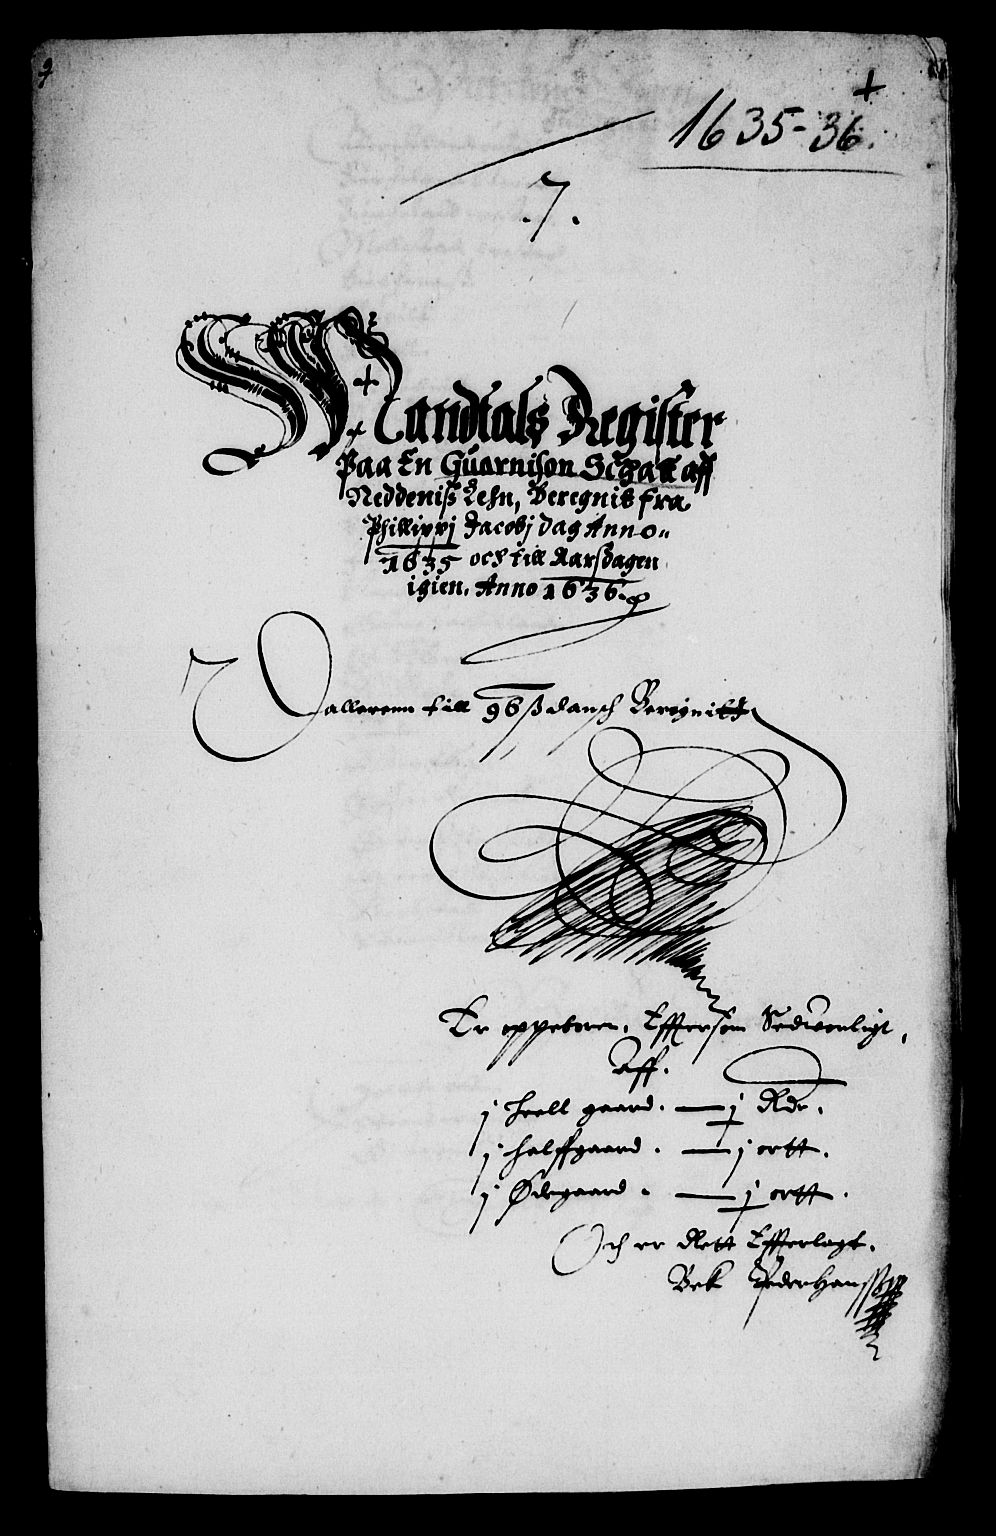 1635-36.
.7.
Mandtals Register
Paa En Guarnison Schatt aff
Neddeniss Lehn, Beregnit fra
Phillippj Jacobj dag Anno
1635 och till Aarsdagen
igien. Anno 1636.
Dallerenn till 96 ß dansch Beregnitt
Er oppeboren, Effterson Sedwonligt,
Aff.
j heell gaard. — j Rdr.
j halffgaard. — j ortt.
j Ødegaard. — j ortt.
Och er Rett Efferlagt.
Bek Peder Hanssen